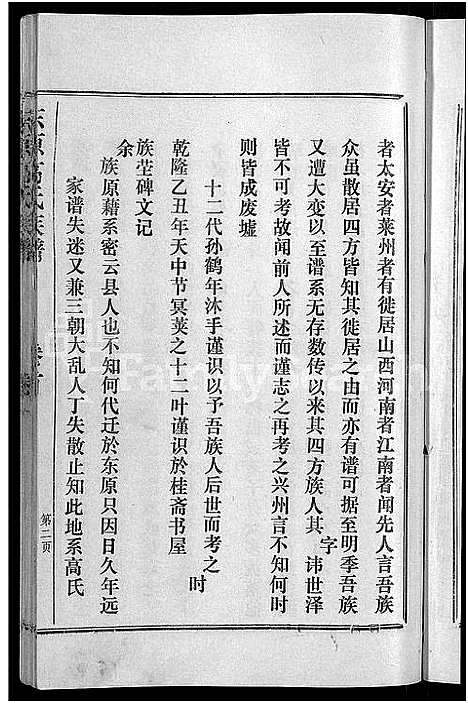 者太安者莱州者有徙居山西河南者江南者闻先人言吾族
众虽散居四方皆知其徙居之由而亦有谱可据至明季吾族
又遭大变以至谱系无存数传以来其四方族人其字讳世泽
皆不可考故闻前人所述而谨志之再考之兴州言不知何时
则皆成废墟
十二代孙鹤年沐手谨识以予吾族人后世而考之时
乾隆乙丑年天中节冥荚之十二叶谨识於桂斋书屋
族茔碑文记
余族原藉系密云县人也不知何代迁於东原只因日久年远
家谱失迷又兼三朝大乱人丁失散止知此地系高氏
东原高氏族谱
卷首
第二页